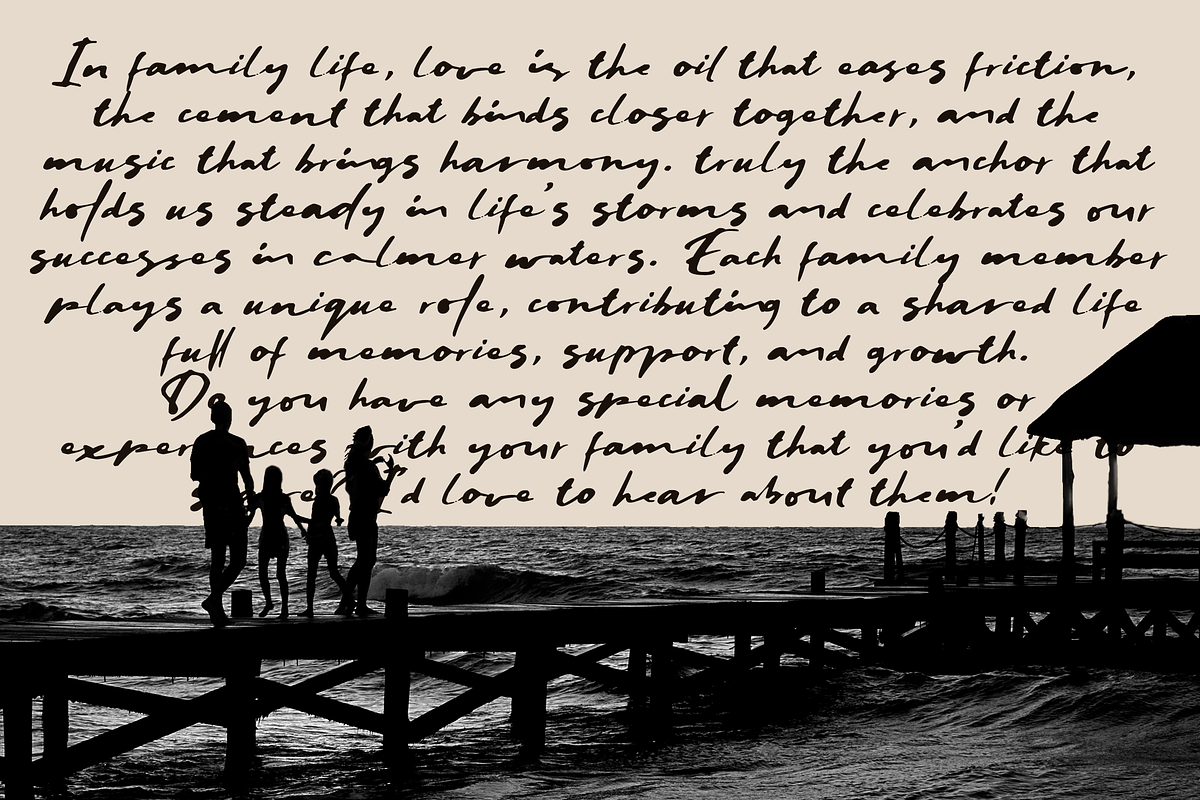 In family life, love is the oil that eases friction,
the cement that binds closer together, and the
music that brings harmony. truly the anchor that
holds us steady in life's storms and celebrates our
successes in calmer waters. Each family member
plays a unique role, contributing to a shared life
full of memories, support, and growth.
Do you have any special memories or
with your family that you'd like to
love to hear about them!